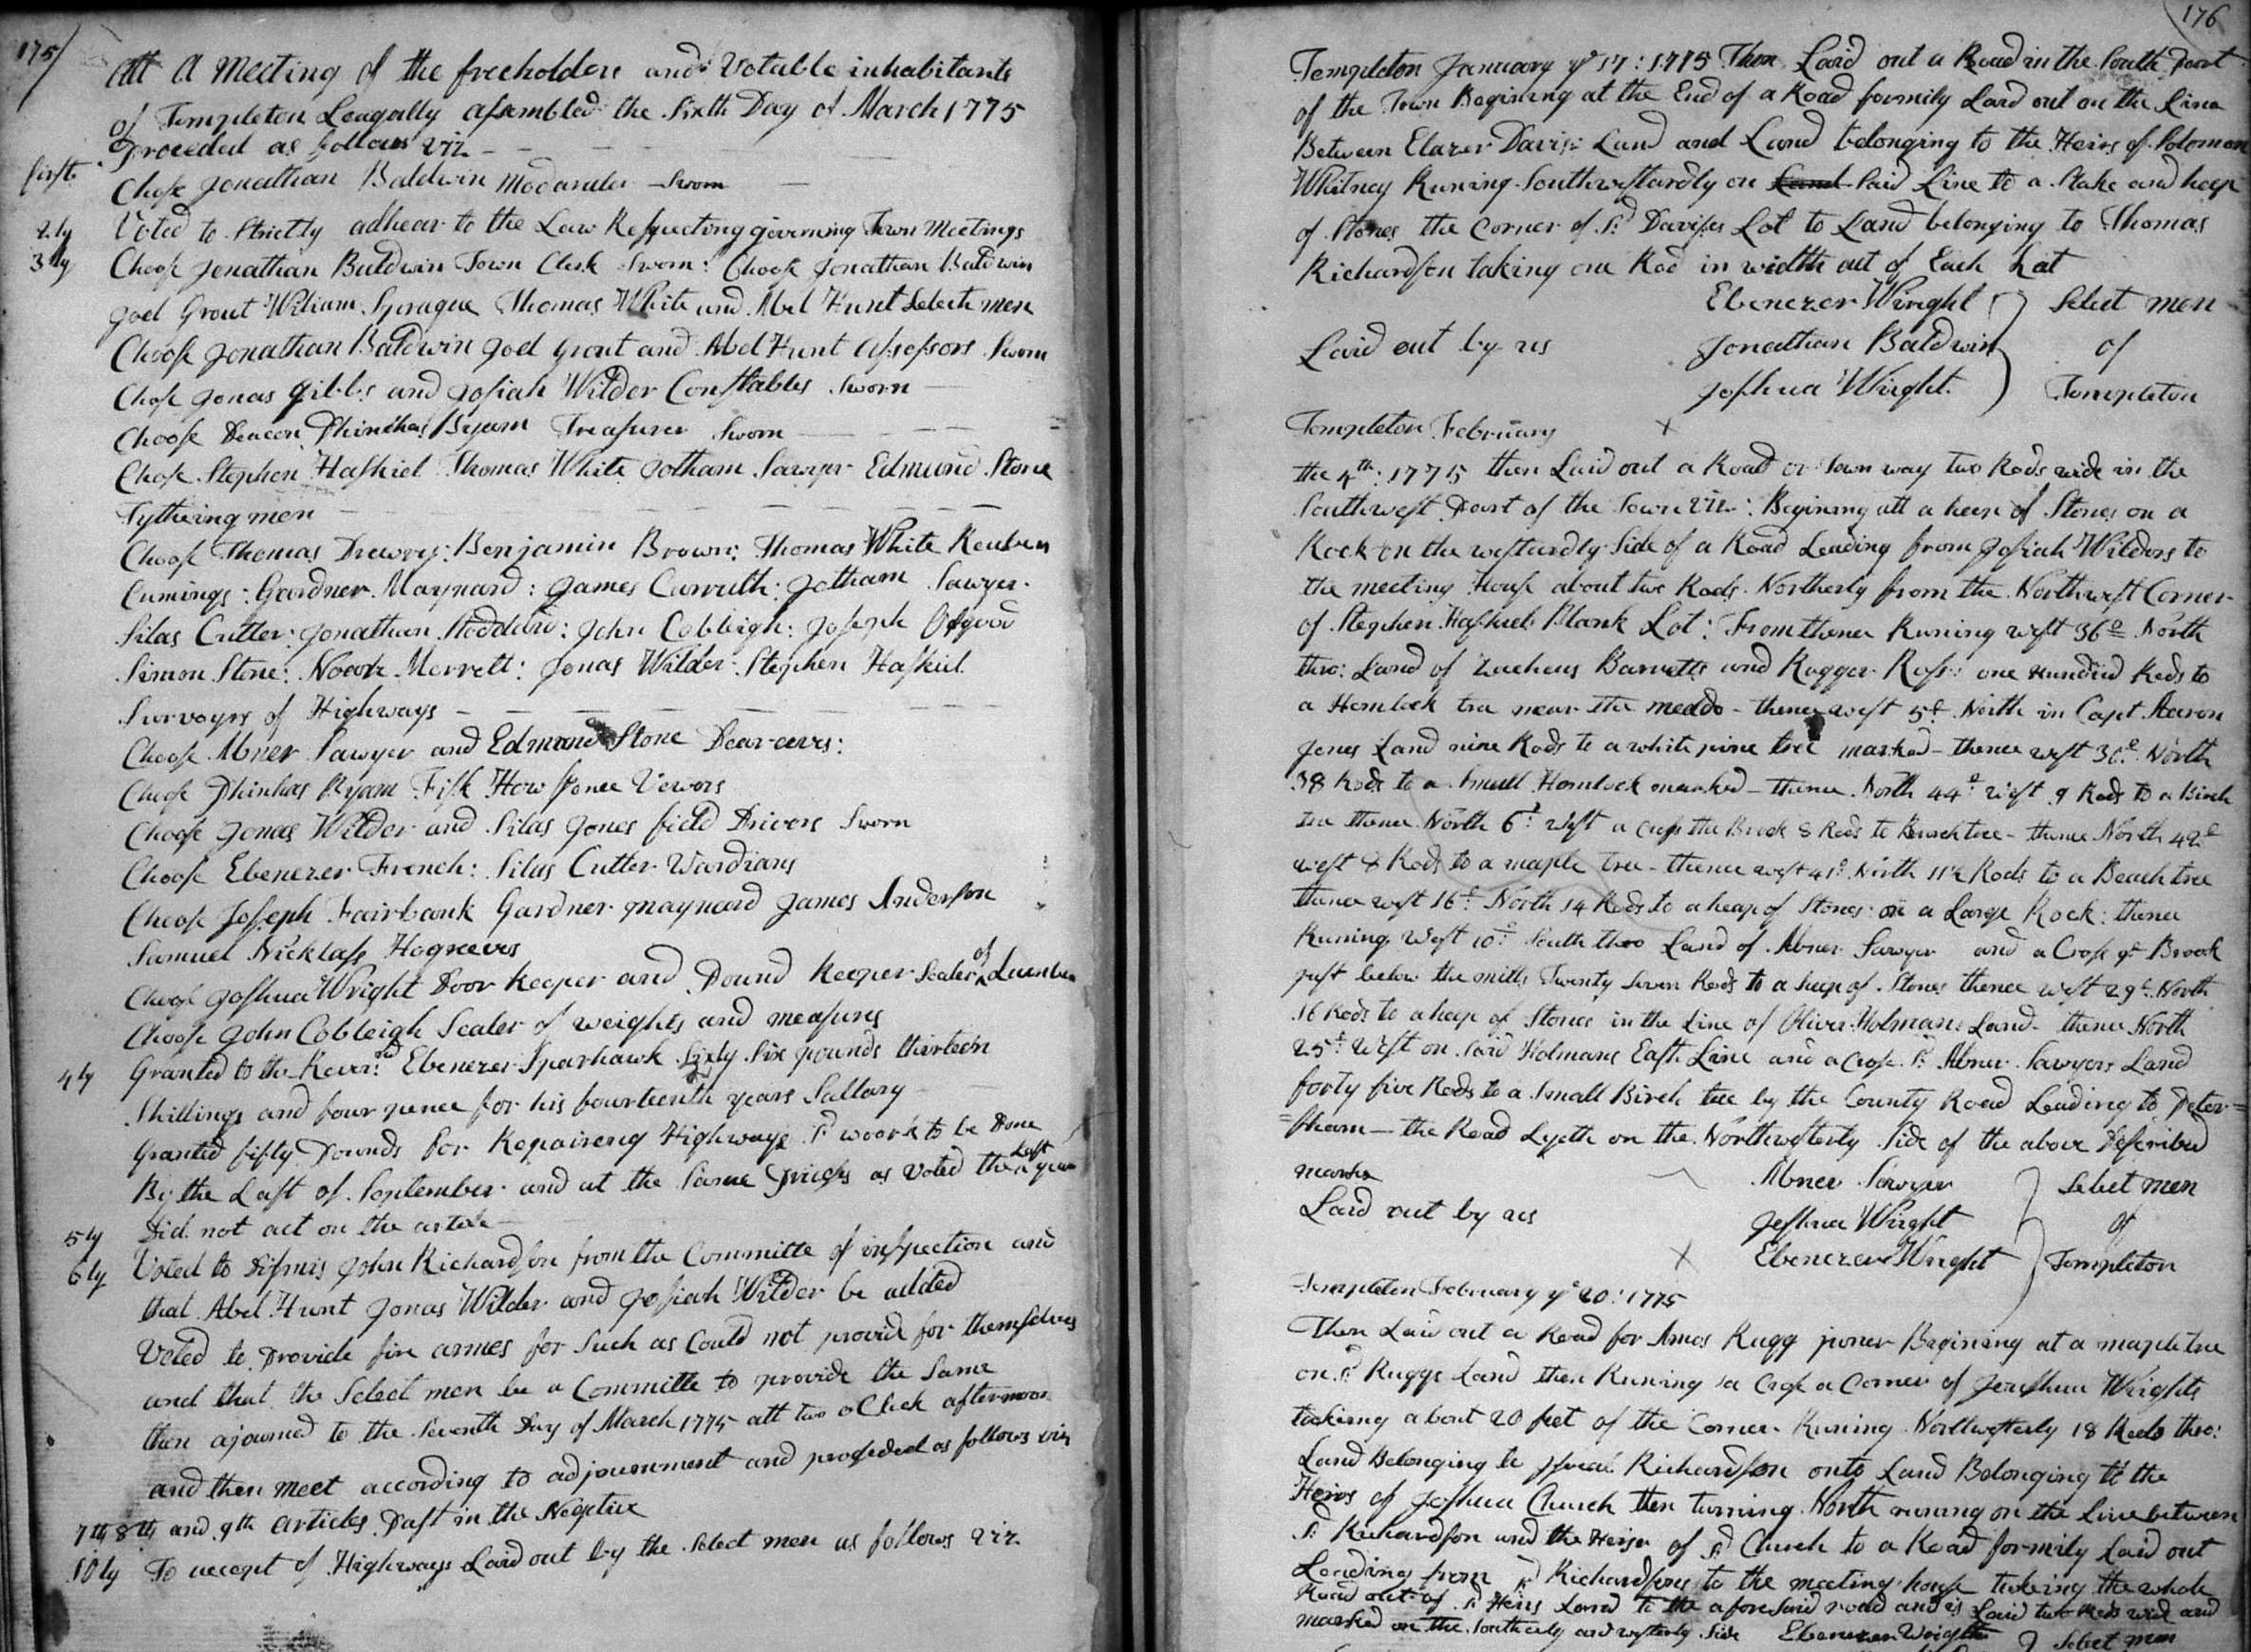 175
Att A Meeting of the freeholders and Votable inhabitants
of Templeton Leagally assembled the Sixth Day of March 1775
Proceeded as follows viz
first Chose Jonathan Baldwin Modarater Sworn
2ly Voted to Strictly adhear to the Law Respecting governing Town Meetings
3ly Choose Jonathan Baldwin Town Clerk Sworn: Choose Jonathan Baldwin
Joel Grout William Sprague Thomas White and Abel Hunt Select men
Choose Jonathan Baldwin Joel Grout and Abel Hunt Assessors Sworn
Chose Jonas Gibbs and Josiah Wilder Constables Sworn
Choose Deacon Phinehas Byam Treasurer Sworn
Chose Stephen Haskiel Thomas White Jotham Sawyer Edmund Stone
Tytheing men
Choose Thomas Drewry: Benjamin Brown: Thomas White Reuben
Cumings: Gardner Maynard: James Carruth: Jotham Sawyer
Silas Cutler: Jonathan Stoddard: John Cobleigh: Joseph Osgood
Simon Stone: Noah Merrett: Jonas Wilder: Stephen Haskiel
Surveyrs of Highways
Choose Abner Sawyer and Edmund Stone Dear reevs:
Chose Phinhas Byam Fish How fence Vewors
Choose Jonas Wilder and Silas Jones field Drivers Sworn
Choose Ebenezer French: Silas Cutler Wardians
Choose Joseph Fairbank Gardner Maynard James Anderson
Samuel Nicklass Hogreevs
Choose Joshua Wright Door Keeper and Pound Keeper Sealer of Lumber
Choose John Cobleigh Sealer of weights and measures
4ly Granted to the Reverd Ebenezer Sparhawk Sixty Six pounds thirteen
Shillings and four pence for his fourteenth years Sallary
Granted fifty Pounds for Repaireng Highways sd woork to be Done
By the Last of September and at the Same prices as voted the Last year
5ly Did not act on the artcle
6ly Voted to Dismis John Richardson from the Committe of inspection and
that Abel Hunt Jonas Wilder and Josiah Wilder be added
Voted to Provide fire armes for Such as Could not provide for themselves
and that the Select men be a Committe to provide the Same
then ajourned to the Seventh Day of March 1775 att two oClock afternoon
and then meet according to adjournment and proseded as follows viz
7th 8th and 9th articles Past in the Negetive
10ly To accept of Highways Laid out by the Select men as follows viz
176
Templeton January ye 17: 1775 Then Laid out a Road in the South Part
of the Town Begining at the End of a Road formily Laid out on the Line
Between Elazer Davis: Land and Land belonging to the Heirs of Solomon
Whitney Runing Southwestardly on Said Line to a Stake and heep
of Stones the Corner of sd Davises Lot to Land belonging to Thomas
Richardson taking one Rod in width out of Each Lot
Ebenezer Wright Select men
Laid out by us Jonathan Baldwin of
Joshua Wright Templeton
Templeton February
the 4th: 1775 then Laid out a Road or Town way two Rods wide in the
Southwest Part of the Town viz: Begining att a heep of Stones on a
Rock on the westardly Side of a Road Leading from Josiah Wilders to
the meeting House about two Rods Northerly from the Northwest Corner
of Stephen Haskiels Blank Lot: From thence Runing west 36d North
thro: Land of Zacheus Barretts and Rugger Ross: one Hundrid Rods to
a Hemlock tree near the meado - thence west 5d North in Capt Aaron
Jones Land nine Rods to a white pine tree marked - thence west 30d North
38 Rods to a Small Hemlock marked - thence North 44d west 9 Rods to a Birch
tree thence North 6d West a cross the Brook 8 Rods to Beach tree - thence North 42d
west 8 Rods to a maple tree - thence west 41d North 11½ Rods to a Beach tree
thence west 16d North 14 Rods to a heap of Stones on a Large Rock: thence
Runing West 10d South thro Land of Abner Sawyer and a Cross ye Brook
just below the mills Twenty Seven Rods to a heep of Stones thence west 29d North
16 Rods to a heep of Stones in the Line of Oliver Holmans Land - thence North
25d West on Said Holmans East Line and a Cross sd Abner Sawyers Land
forty five Rods to a Small Birch tree by the County Road Leading to Peter=
=sham - the Road Lyeth on the Northwesterly Side of the above Described
marks Abner Sawyer Select men
Laid out by us Joshua Wright of
Ebenezer Wright Templeton
Templeton February ye 20: 1775
Then Laid out a Road for Amos Rugg juner Begining at a maple tree
on sd Ruggs Land then Runing a Cross a Corner of Joushua Wrights
tackeing about 20 feet of the Corner Runing Northwesterly 18 Rods thro:
Land Belonging to Isreal Richardson onto Land Belonging to the
Heirs of Joshua Church then turning North runing on the Line between
sd Richardson and the Heirs of sd Church to a Road formily Laid out
Leading from sd Richardsons to the meeting house takeing the whole
Road out of sd Heirs Land to the afore Said road and is Laid two Rods wide and
marked on the Southerly and westerly Side Ebenezer Wright Select men